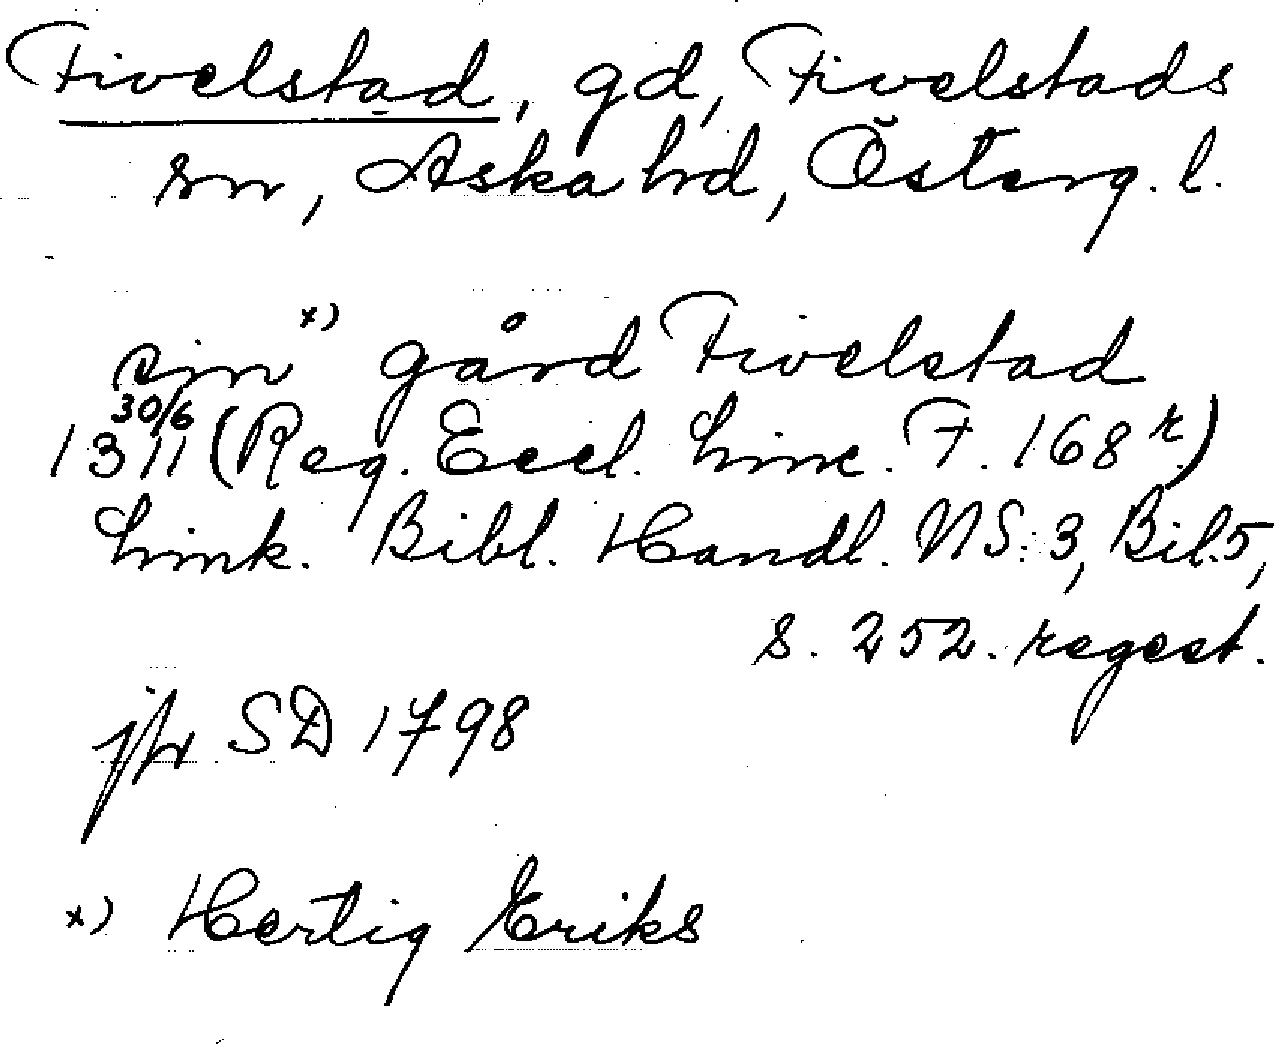 Fivelstad, gd, Fivelstads
sn, Aska hd, Österg. l.
sin x) gård Fivelstad
30/6 1311 (Reg. Eccl. Linc. F. 168 r.)
Link. Bibl. Handl. NS: 3, Bil. 5,
s. 252. regest.
jfr SD 1798
x) Hertig Eriks